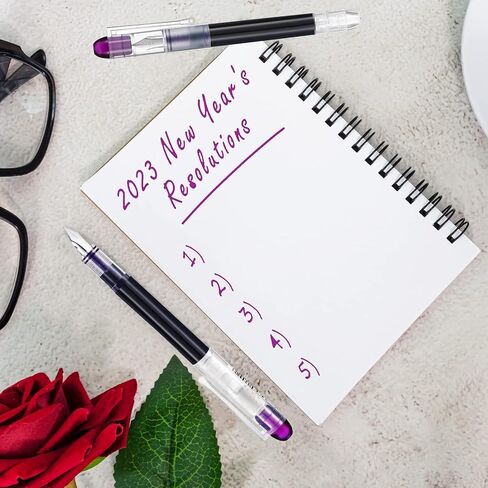 2023 New Year's
Resolutions
1)
2)
3)
4)
5)